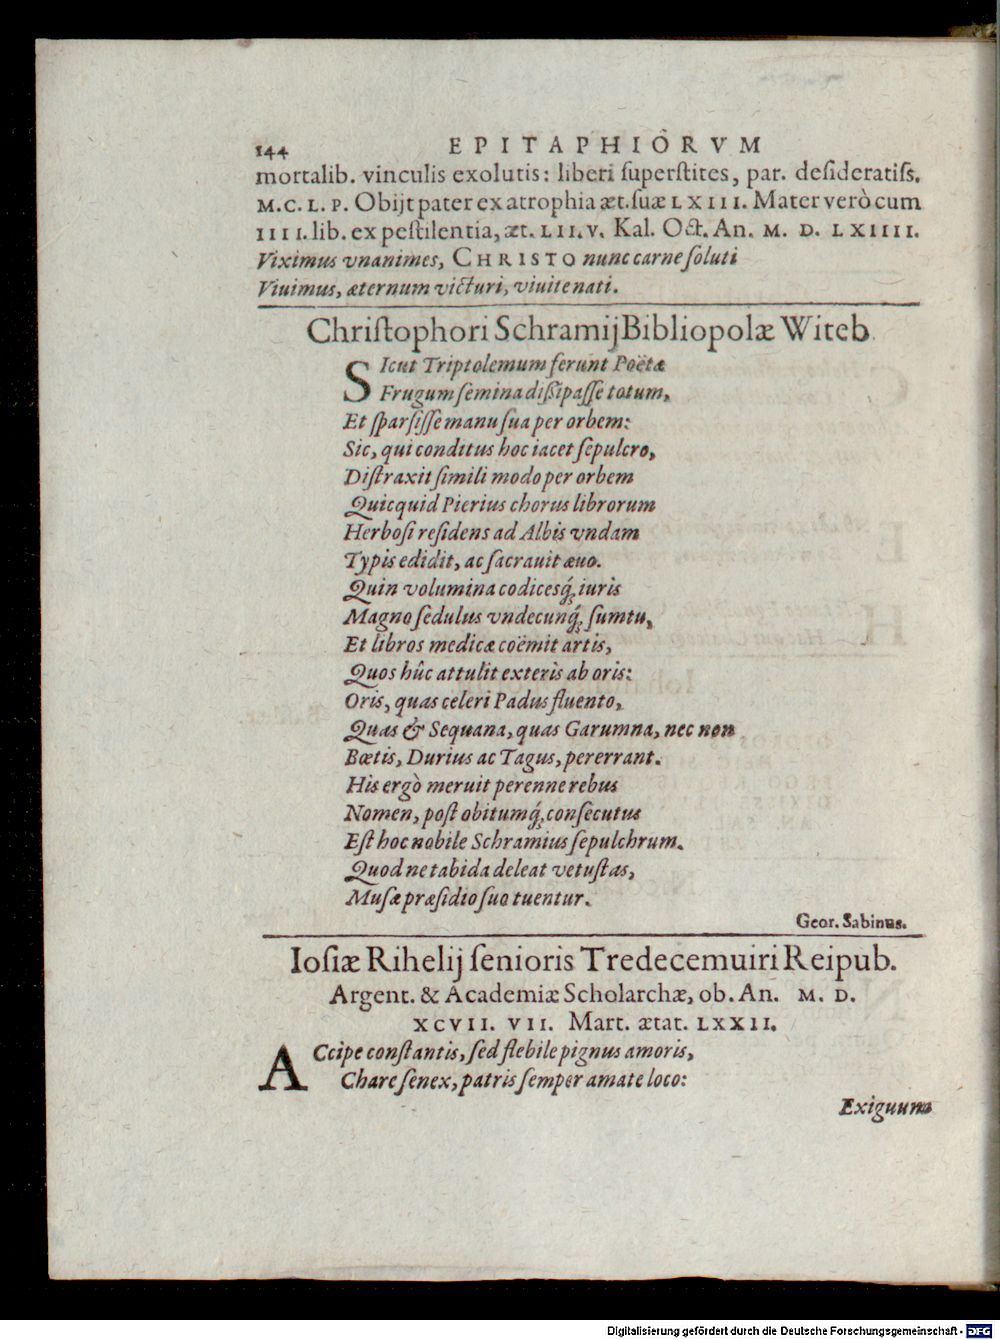 144 EPITAPHIORVM
mortalib. vinculis exolutis: liberi ſuperſtites, par. deſideratiſs.
M.C.L.P. Obijt pater ex atrophia æt. ſuæ LXIII. Mater verò cum
IIII. lib. ex peſtilentia, æt. LII. V. Kal. Oct. An. M. D. LXIIII.
Viximus vnanimes, CHRISTO nunc carne ſoluti
Viuimus, æternum victuri, viuite nati.
Chriſtophori Schramij Bibliopolæ Witeb.
SIcut Triptolemum ferunt Poëtæ
Frugum ſemina diſſipaſſe totum,
Et ſparſiſſe manu ſua per orbem:
Sic, qui conditus hoc iacet ſepulcro,
Diſtraxit ſimili modo per orbem
Quicquid Pierius chorus librorum
Herboſi reſidens ad Albis vndam
Typis edidit, ac ſacrauit æuo.
Quin volumina codicesq́; iuris
Magno ſedulus vndecunq́; ſumtu,
Et libros medicæ coëmit artis,
Quos hûc attulit exteris ab oris:
Oris, quas celeri Padus fluento,
Quas & Sequana, quas Garumna, nec non
Bœtis, Durius ac Tagus, pererrant.
His ergò meruit perenne rebus
Nomen, poſt obitumq́; conſecutus
Eſt hoc nobile Schramius ſepulchrum.
Quod ne tabida deleat vetuſtas,
Muſæ præſidio ſuo tuentur.
Geor. Sabinus.
Ioſiæ Rihelij ſenioris Tredecemuiri Reipub.
Argent. & Academiæ Scholarchæ, ob. An. M. D.
XCVII. VII. Mart. ætat. LXXII.
ACcipe conſtantis, ſed flebile pignus amoris,
Chare ſenex, patris ſemper amate loco:
Exiguum
Digitalisierung gefördert durch die Deutsche Forschungsgemeinschaft - DFG